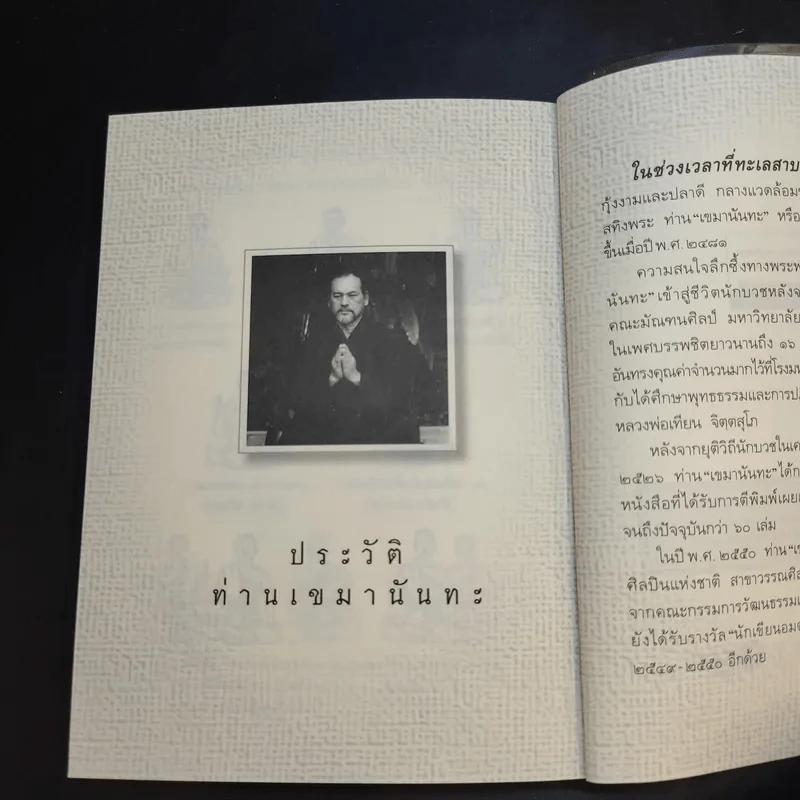 ประวัติ
ท่านเขมานันทะ
ในช่วงเวลาที่ทะเลสาบ
กุ้งงามและปลาดี กลางแวดล้อม
สทิงพระ ท่าน “เขมานันทะ” หรือ
ขึ้นเมื่อปี พ.ศ. ๒๔๘๑
ความสนใจลึกซึ้งทางพระพ
นันทะ” เข้าสู่ชีวิตนักบวชหลังจ
คณะมัณฑนศิลป์ มหาวิทยาลัย
ในเพศบรรพชิตยาวนานถึง ๑๖
อันทรงคุณค่าจำนวนมากไว้ที่โรงม
กับได้ศึกษาพุทธธรรมและการป
หลวงพ่อเทียน จิตฺตสุโภ
หลังจากยุติวิถีนักบวชในเ
๒๕๒๖ ท่าน “เขมานันทะ” ได้ก
หนังสือที่ได้รับการตีพิมพ์เผยแ
จนถึงปัจจุบันกว่า ๖๐ เล่ม
ในปี พ.ศ. ๒๕๕๐ ท่าน “เข
ศิลปินแห่งชาติ สาขาวรรณศิล
จากคณะกรรมการวัฒนธรรมแ
ยังได้รับรางวัล “นักเขียนอมต
๒๕๔๙-๒๕๕๐ อีกด้วย